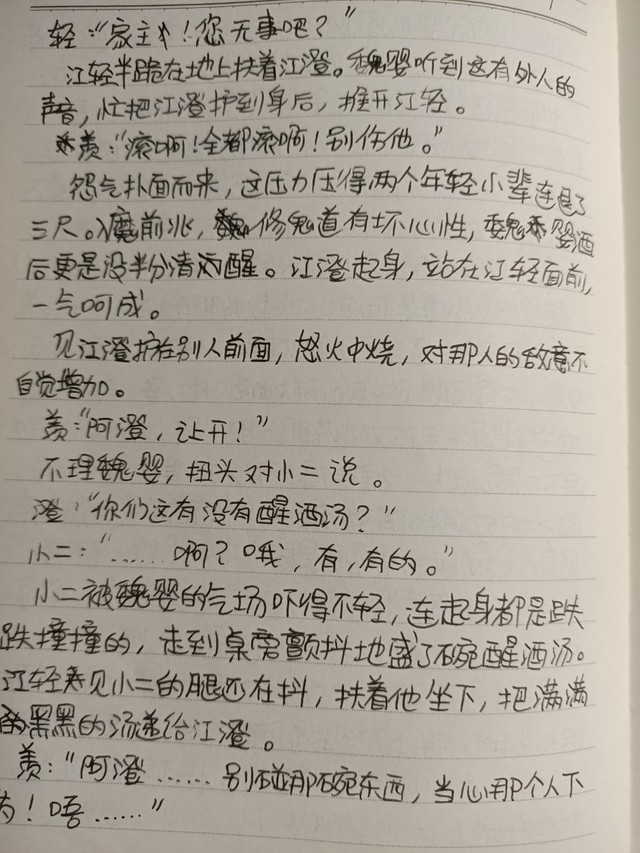 轻："家主！您无事吧？"
江轻半跪在地上扶着江澄。魏婴听到这有外人的
声音，忙把江澄护到身后，推开江轻。
羡："滚啊！全都滚啊！别伤他。"
怨气扑面而来，这压力压得两个年轻小辈连退了
三尺。入魔前兆，修鬼道有坏心性，魏婴酒
后更是没半分清醒。江澄起身，站在江轻面前，
一气呵成。
见江澄护在别人前面，怒火中烧，对那人的敌意不
自觉增加。
羡："阿澄，让开！"
不理魏婴，扭头对小二说。
澄："你们这有没有醒酒汤？"
小二："……啊？哦，有，有的。"
小二被魏婴的气场吓得不轻，连起身都是跌
跌撞撞的，走到桌旁颤抖地盛了碗醒酒汤。
江轻见小二的腿还在抖，扶着他坐下，把满满
黑黑的汤递给江澄。
羡："阿澄……别碰那碗东西，当心那个人下
为！唔……"